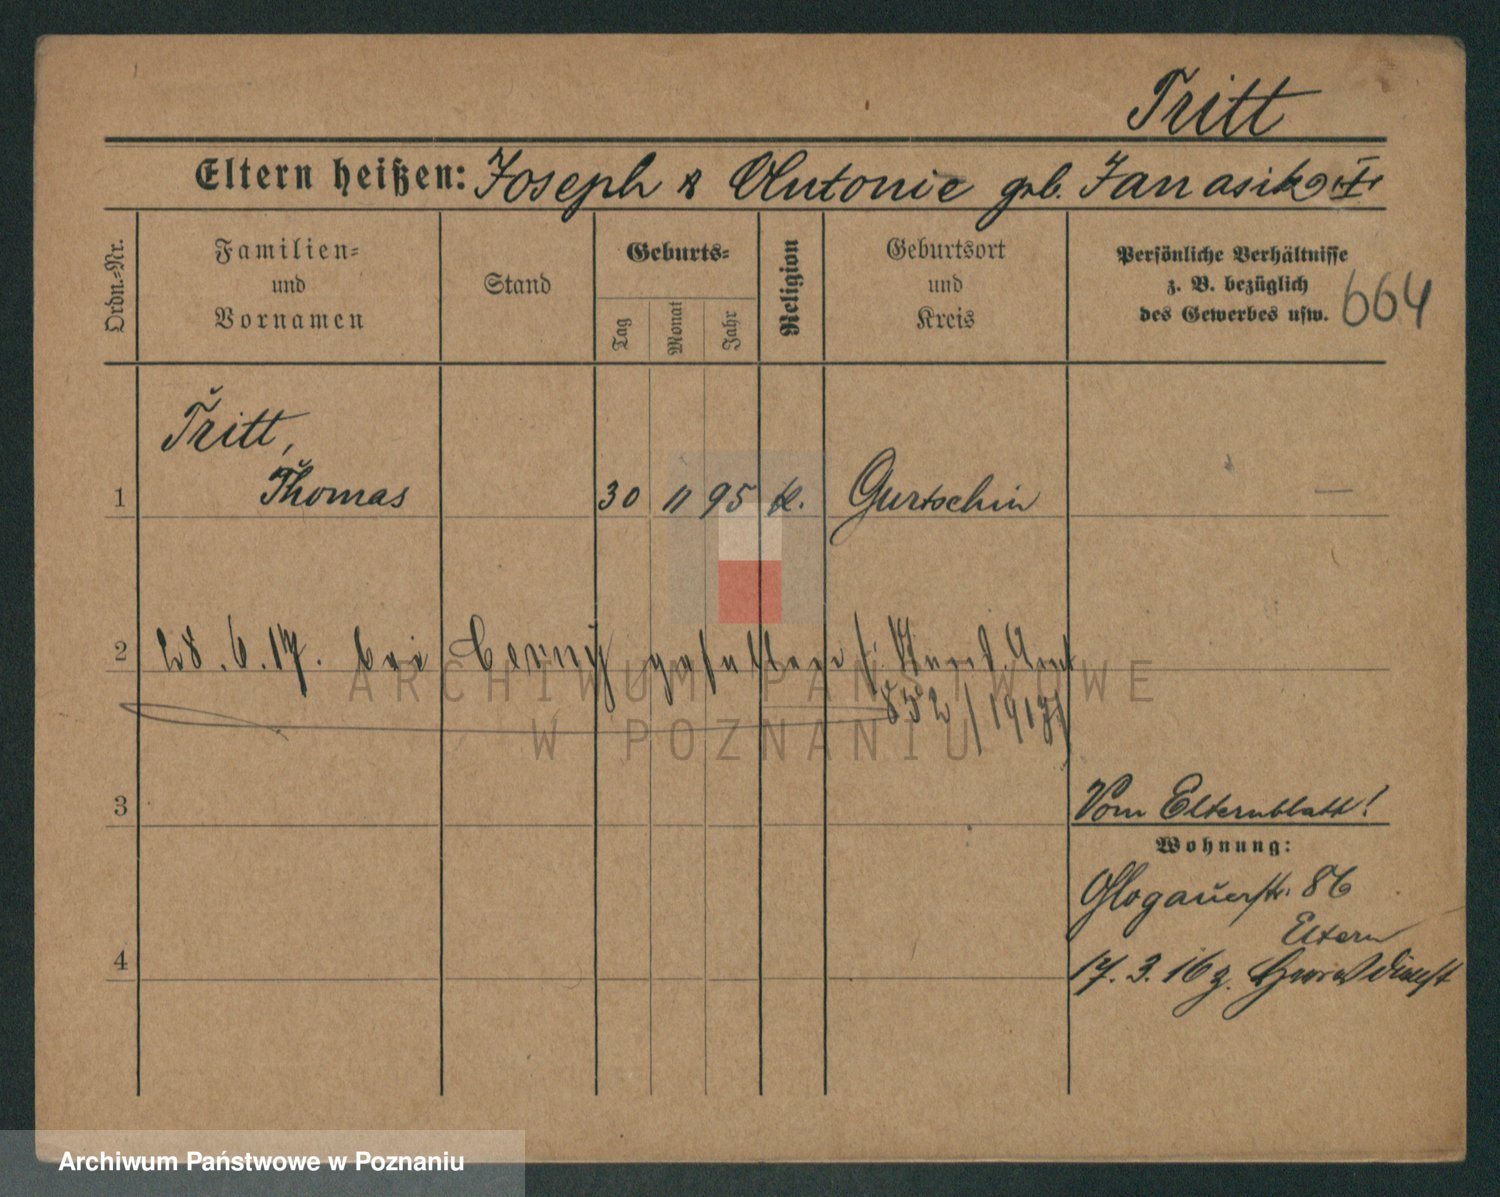 Tritt
Eltern heißen: Joseph & Antonie geb.
Ordn.=Nr.
Familien=
und
Vornamen
Stand
Geburts=
Tag
Monat
Jahr
Religion
Geburtsort
und
Kreis
Persönliche Verhältnisse
z. B. bezüglich
des Gewerbes usw.
664
Tritt,
1 Thomas 30 11 95 k. Gurtschin —
2 28.6.17. bei Cerny gefallen
852/1917
3
Vom Elternblatt!
Wohnung:
Glogauerstr. 86
Eltern
4
17.3.16 z. Heeresdienst
ARCHIWUM PAŃSTWOWE
W POZNANIU
Archiwum Państwowe w Poznaniu